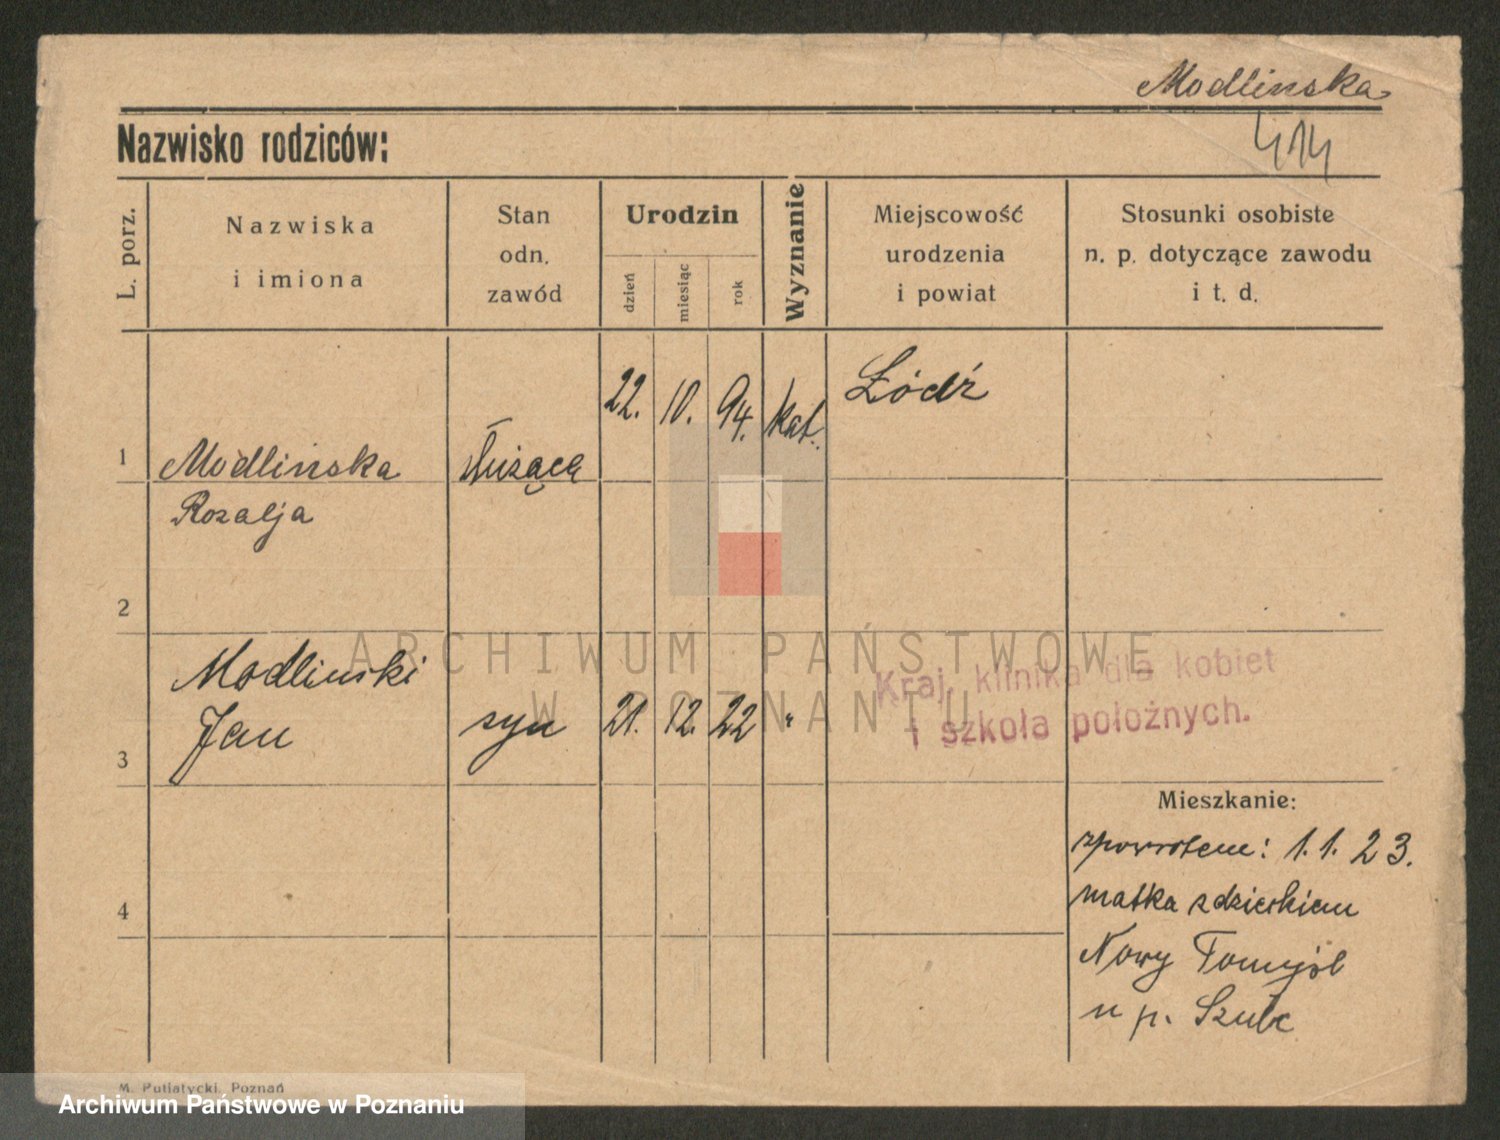 Modlinska
414
Nazwisko rodziców:
L. porz.
Nazwiska
i imiona
Stan
odn.
zawód
Urodzin
dzień
miesiąc
rok
Wyznanie
Miejscowość
urodzenia
i powiat
Stosunki osobiste
n. p. dotyczące zawodu
i t. d.
1
Modlińska
Rozalja
służąca
22. 10. 94. kat.
Łódź
2
3
Modlinski
Jan
syn
21. 12. 22 "
Kraj. klinika dla kobiet
i szkoła położnych.
4
Mieszkanie:
zpowrotem: 1. 1. 23.
matka z dzieckiem
Nowy Tomyśl
u p. Szulc
M. Putiatycki, Poznań
ARCHIWUM PAŃSTWOWE
W POZNANIU
Archiwum Państwowe w Poznaniu